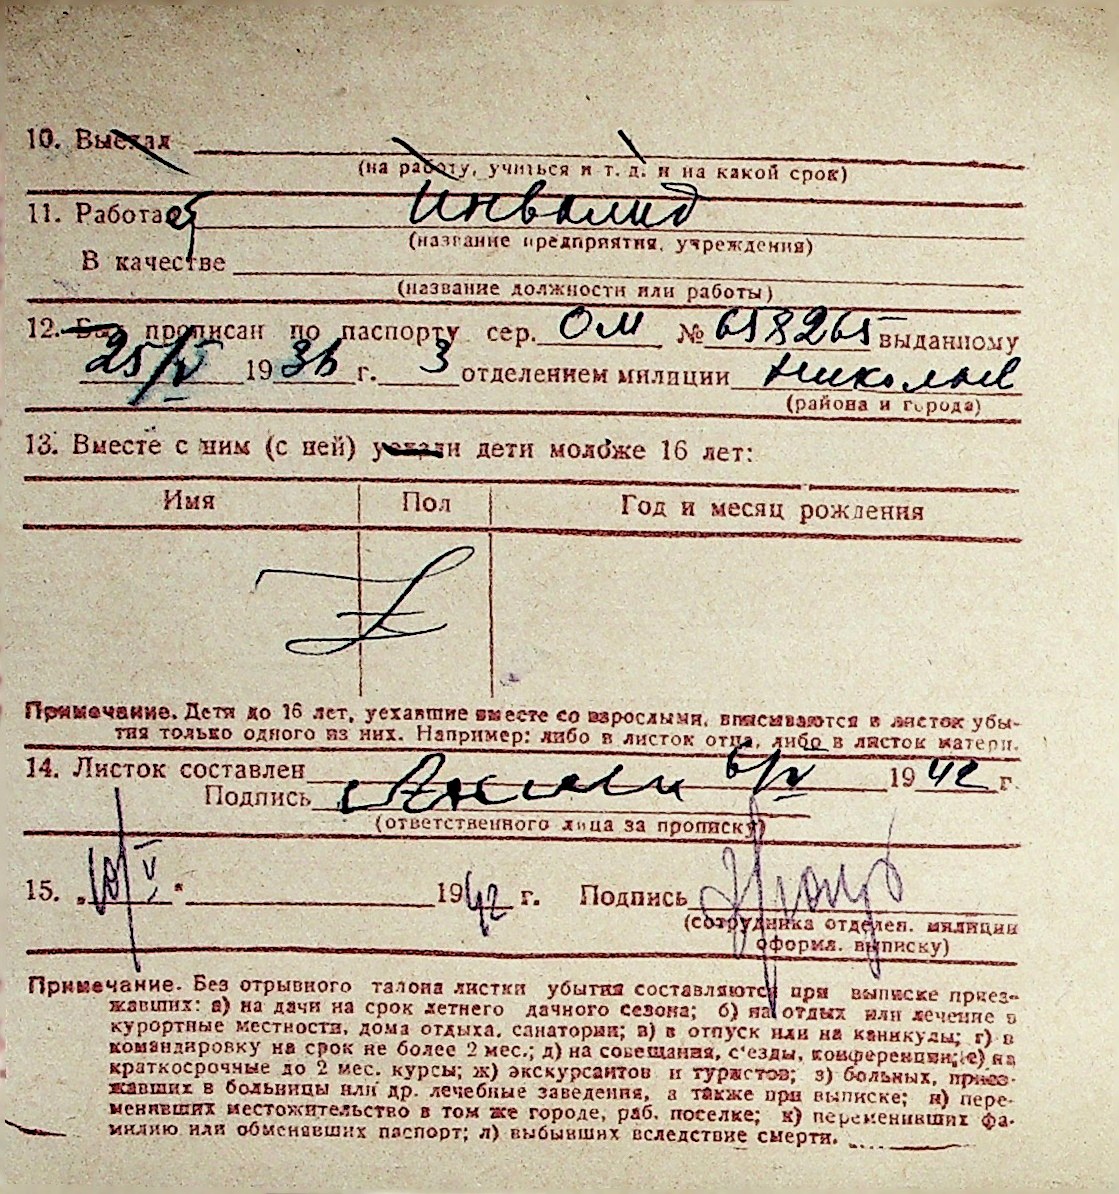 10. Выехал
(на работу, учиться и т. д. и на какой срок)
11. Работает Инвалид
(название предприятия, учреждения)
В качестве
(название должности или работы)
12. Был прописан по паспорту сер. ОМ № 658265 выданному
25/V 1936 г. 3 отделением милиции Николаев
(района и города)
13. Вместе с ним (с ней) уехали дети моложе 16 лет:
Имя Пол Год и месяц рождения
Примечание. Дети до 16 лет, уехавшие вместе со взрослыми, вписываются в листок убы-
тия только одного из них. Например: либо в листок отца, либо в листок матери.
14. Листок составлен 6/V 1942 г.
Подпись
(ответственного лица за прописку)
15. „ /V “ 1942 г. Подпись
(сотрудника отделен. милиции
оформ. выписку)
Примечание. Без отрывного талона листки убытия составляются при выписке приез-
жавших: а) на дачи на срок летнего дачного сезона; б) на отдых или лечение в
курортные местности, дома отдыха, санатории; в) в отпуск или на каникулы; г) в
командировку на срок не более 2 мес.; д) на совещания, с'езды, конференции; е) на
краткосрочные до 2 мес. курсы; ж) экскурсантов и туристов; з) больных, приез-
жавших в больницы или др. лечебные заведения, а также при выписке; и) пере-
менивших местожительство в том же городе, раб. поселке; к) переменивших фа-
милию или обменявших паспорт; л) выбывших вследствие смерти.